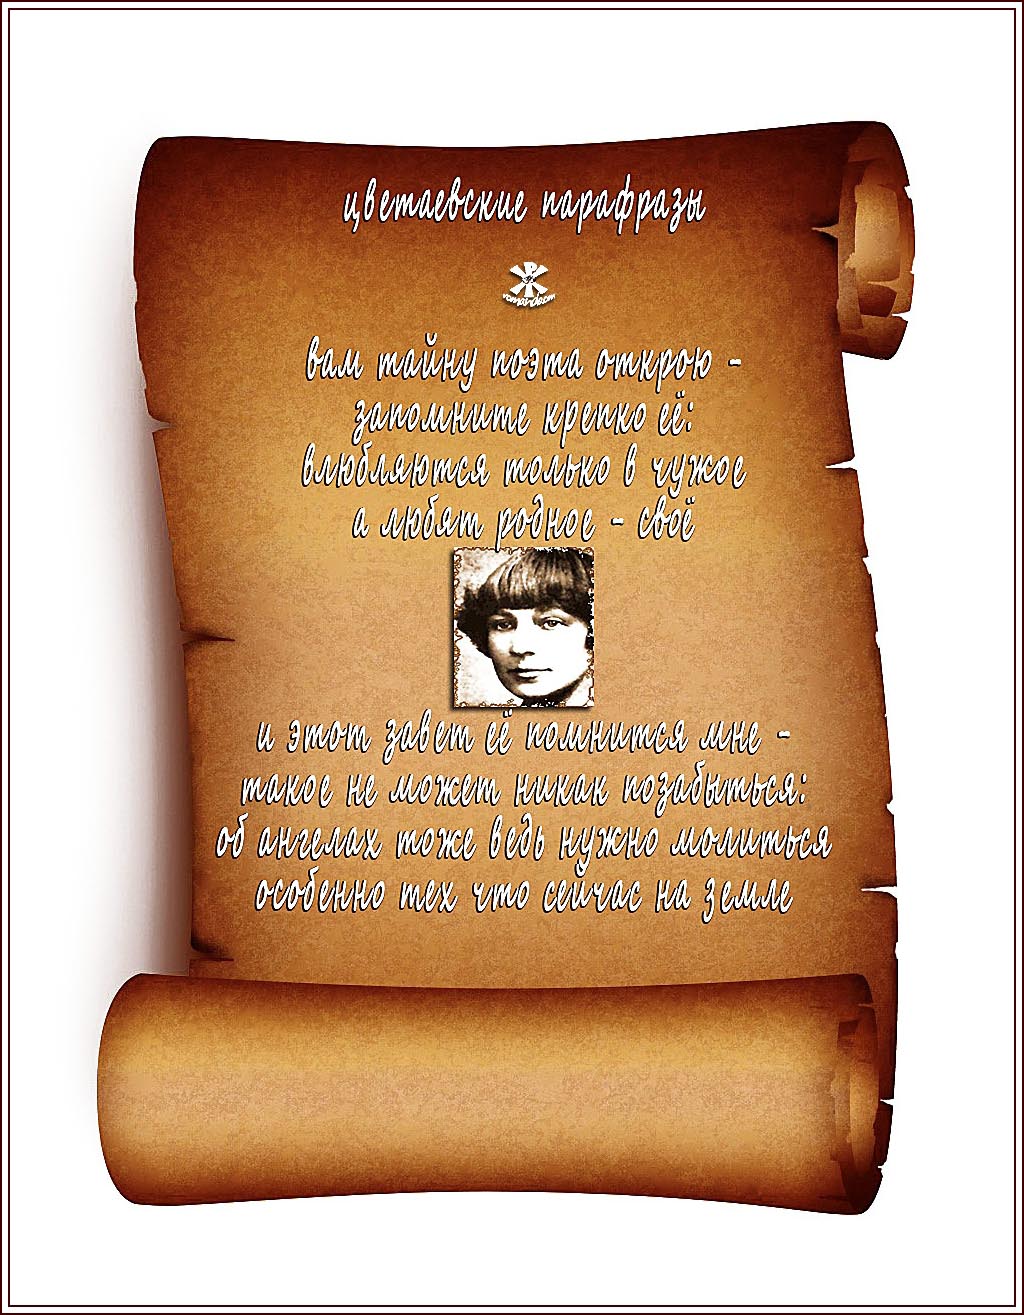 цветаевские парафразы
вам тайну поэта открою -
запомните крепко её:
влюбляются только в чужое
а любят родное - своё
и этот завет её помнится мне -
такое не может никак позабыться:
об ангелах тоже ведь нужно молиться
особенно тех что сейчас на земле